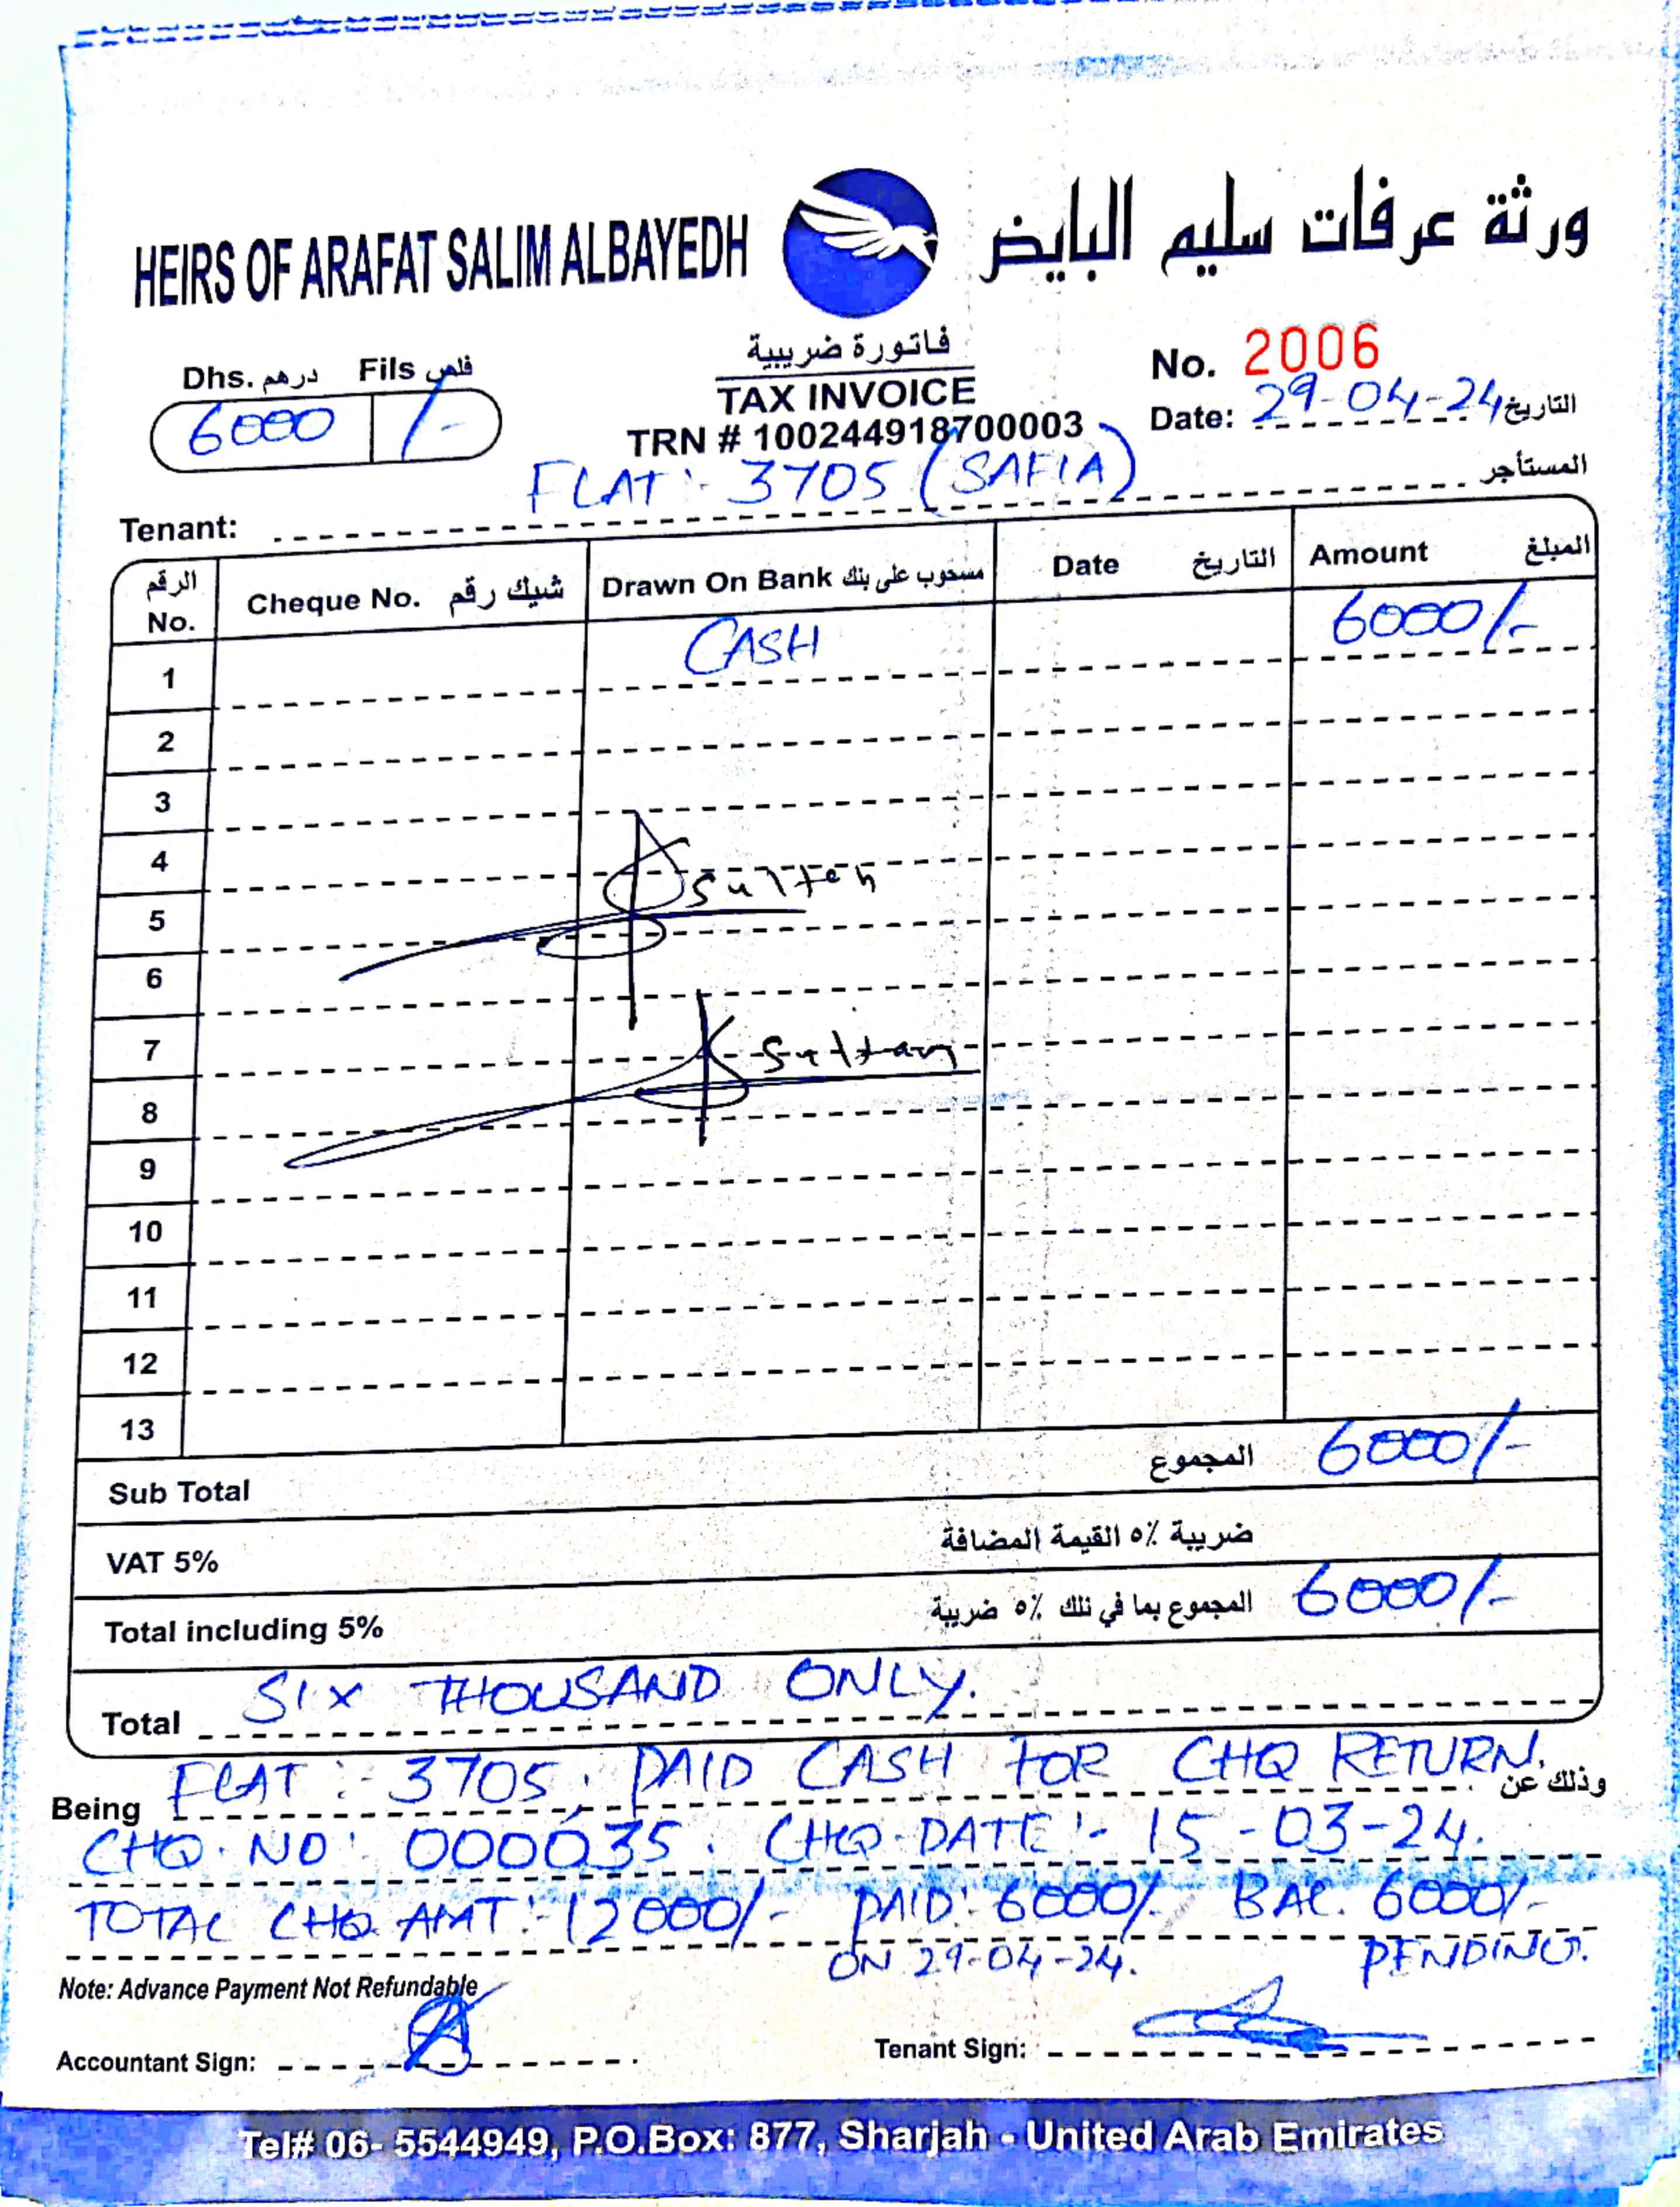 HEIRS OF ARAFAT SALIM ALBAYEDH ورثة عرفات سليم البايض
Dhs. درهم Fils فلس
6000 /-
فاتورة ضريبية
TAX INVOICE
TRN # 100244918700003
No. 2006
Date: 29-04-24 التاريخ
Tenant: FLAT:- 3705 (SAFIA) المستأجر
الرقم No. Cheque No. شيك رقم Drawn On Bank مسحوب على بنك Date التاريخ Amount المبلغ
1 CASH 6000/-
2
3
4
5 Sulten
6
7
8 Sultan
9
10
11
12
13
Sub Total المجموع 6000/-
VAT 5% ضريبة ٥٪ القيمة المضافة
Total including 5% المجموع بما في تلك ٥٪ ضريبة 6000/-
Total SIX THOUSAND ONLY.
Being FLAT:- 3705, PAID CASH FOR CHQ RETURN. وذلك عن
CHQ. NO: 000035. CHQ. DATE:- 15-03-24.
TOTAL CHQ. AMT:- 12000/- PAID: 6000/- BAL. 6000/-
ON 29-04-24. PENDING.
Note: Advance Payment Not Refundable
Accountant Sign: Tenant Sign:
Tel# 06- 5544949, P.O.Box: 877, Sharjah - United Arab Emirates